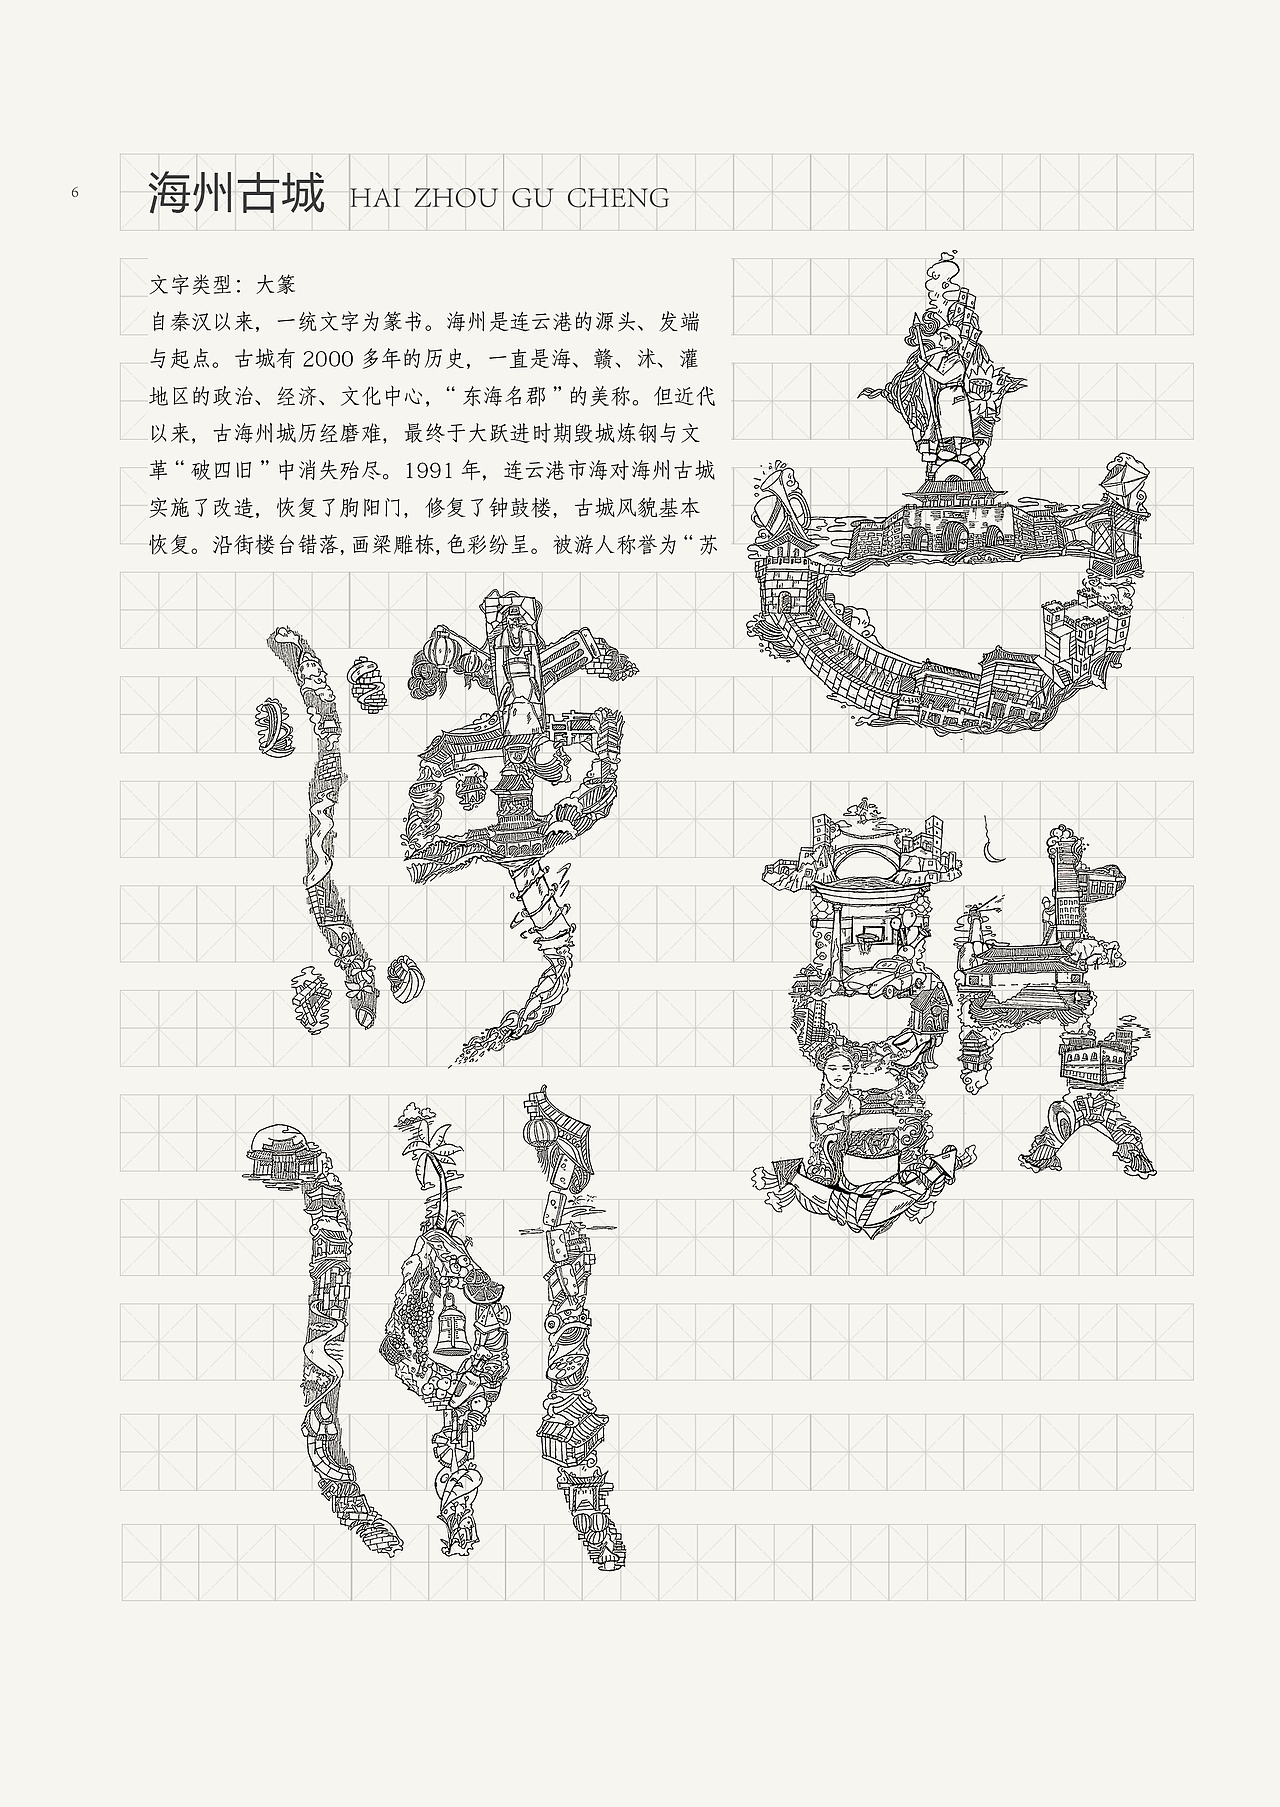 6
海州古城 HAI ZHOU GU CHENG
文字类型：大篆
自秦汉以来，一统文字为篆书。海州是连云港的源头、发端
与起点。古城有 2000 多年的历史，一直是海、赣、沭、灌
地区的政治、经济、文化中心，“东海名郡”的美称。但近代
以来，古海州城历经磨难，最终于大跃进时期毁城炼钢与文
革“破四旧”中消失殆尽。1991 年，连云港市海对海州古城
实施了改造，恢复了朐阳门，修复了钟鼓楼，古城风貌基本
恢复。沿街楼台错落，画梁雕栋，色彩纷呈。被游人称誉为“苏
海州古城